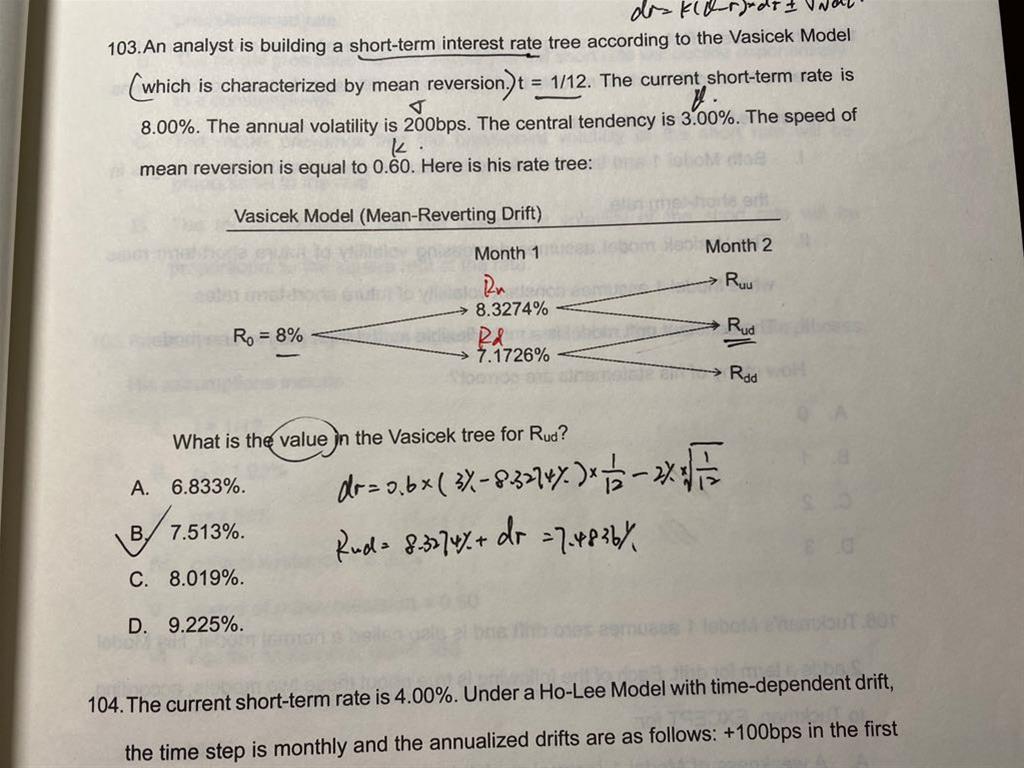 dr = k(θ-r)·dt ±
103. An analyst is building a short-term interest rate tree according to the Vasicek Model
(which is characterized by mean reversion.) t = 1/12. The current short-term rate is
σ θ.
8.00%. The annual volatility is 200bps. The central tendency is 3.00%. The speed of
k.
mean reversion is equal to 0.60. Here is his rate tree:
Vasicek Model (Mean-Reverting Drift)
Month 1 Month 2
Ru Ruu
8.3274%
R0 = 8% Rd Rud
7.1726%
Rdd
What is the value in the Vasicek tree for Rud?
A. 6.833%. dr = 0.6×(3%-8.3274%)×1/12 - 2%×√1/12
B. 7.513%. Rud = 8.3274% + dr = 7.4836%
C. 8.019%.
D. 9.225%.
104. The current short-term rate is 4.00%. Under a Ho-Lee Model with time-dependent drift,
the time step is monthly and the annualized drifts are as follows: +100bps in the first